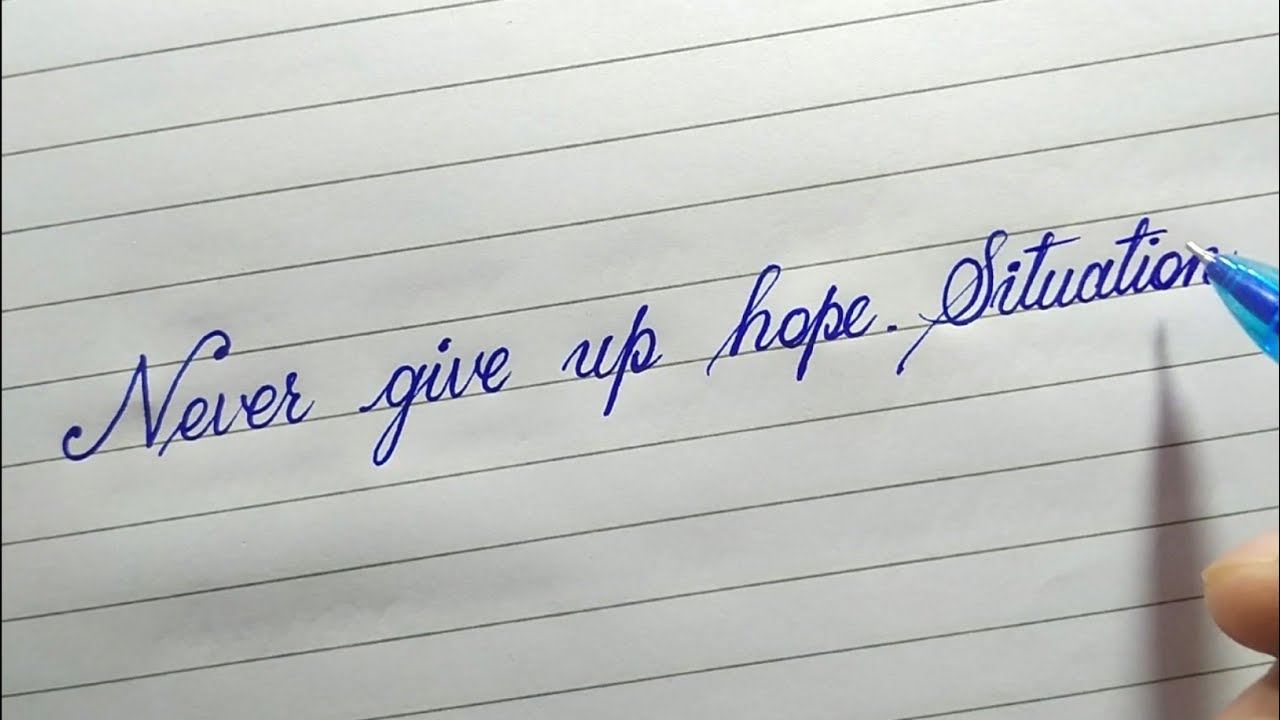 Never give up hope. Situation